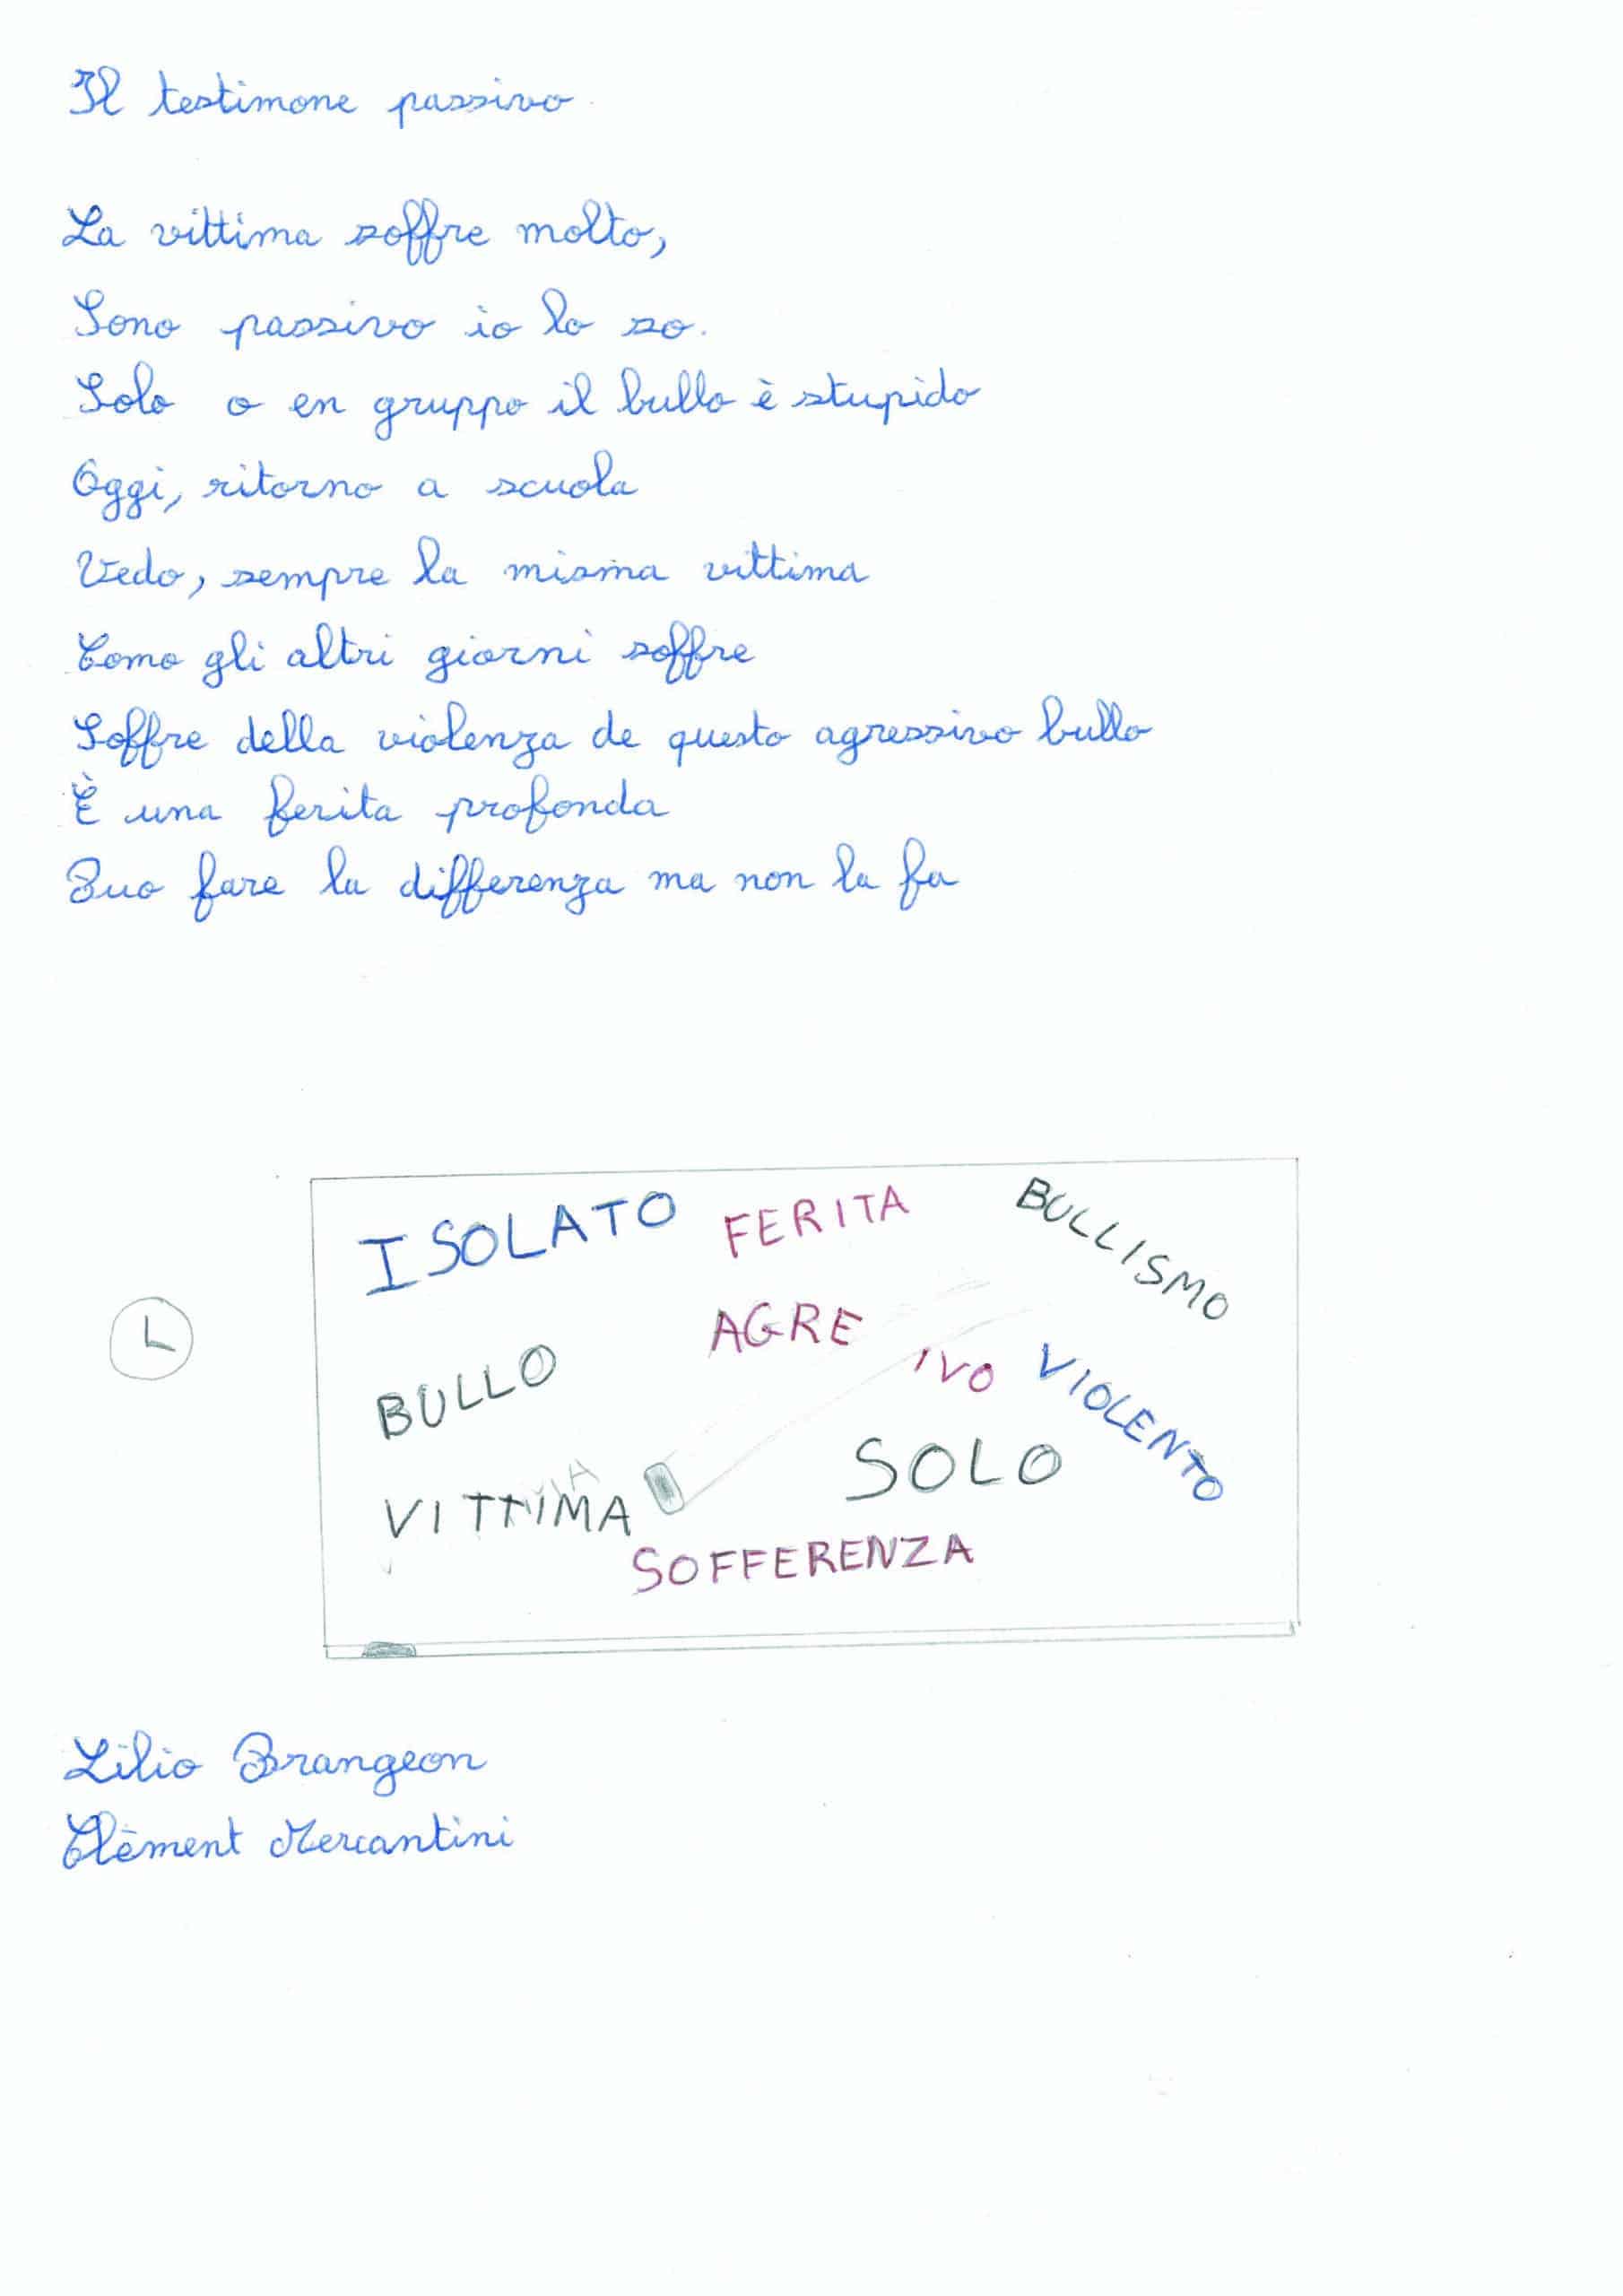 Il testimone passivo
La vittima soffre molto,
Sono passivo io lo so.
Solo o en gruppo il bullo è stupido
Oggi, ritorno a scuola
Vedo, sempre la misma vittima
Como gli altri giorni soffre
Soffre della violenza de questo agressivo bullo
È una ferita profonda
Puo fare la differenza ma non la fa
ISOLATO FERITA BULLISMO
AGRE IVO VIOLENTO
BULLO
SOLO
VITTIMA
SOFFERENZA
Lilio Brangeon
Clèment Mercantini